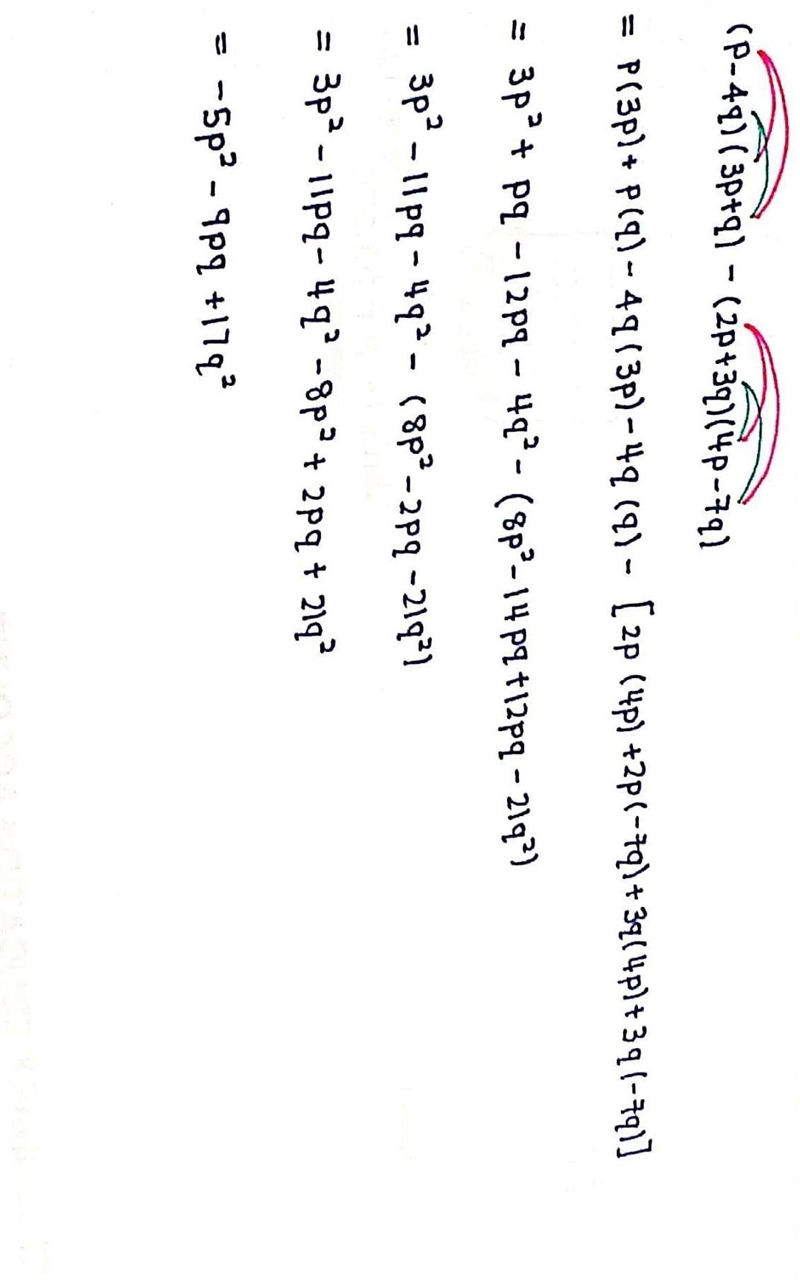 (p-4q)(3p+q) - (2p+3q)(4p-7q)
= p(3p) + p(q) - 4q(3p) - 4q(q) - [2p(4p) + 2p(-7q) + 3q(4p) + 3q(-7q)]
= 3p² + pq - 12pq - 4q² - (8p² - 14pq + 12pq - 21q²)
= 3p² - 11pq - 4q² - (8p² - 2pq - 21q²)
= 3p² - 11pq - 4q² - 8p² + 2pq + 21q²
= -5p² - 9pq + 17q²